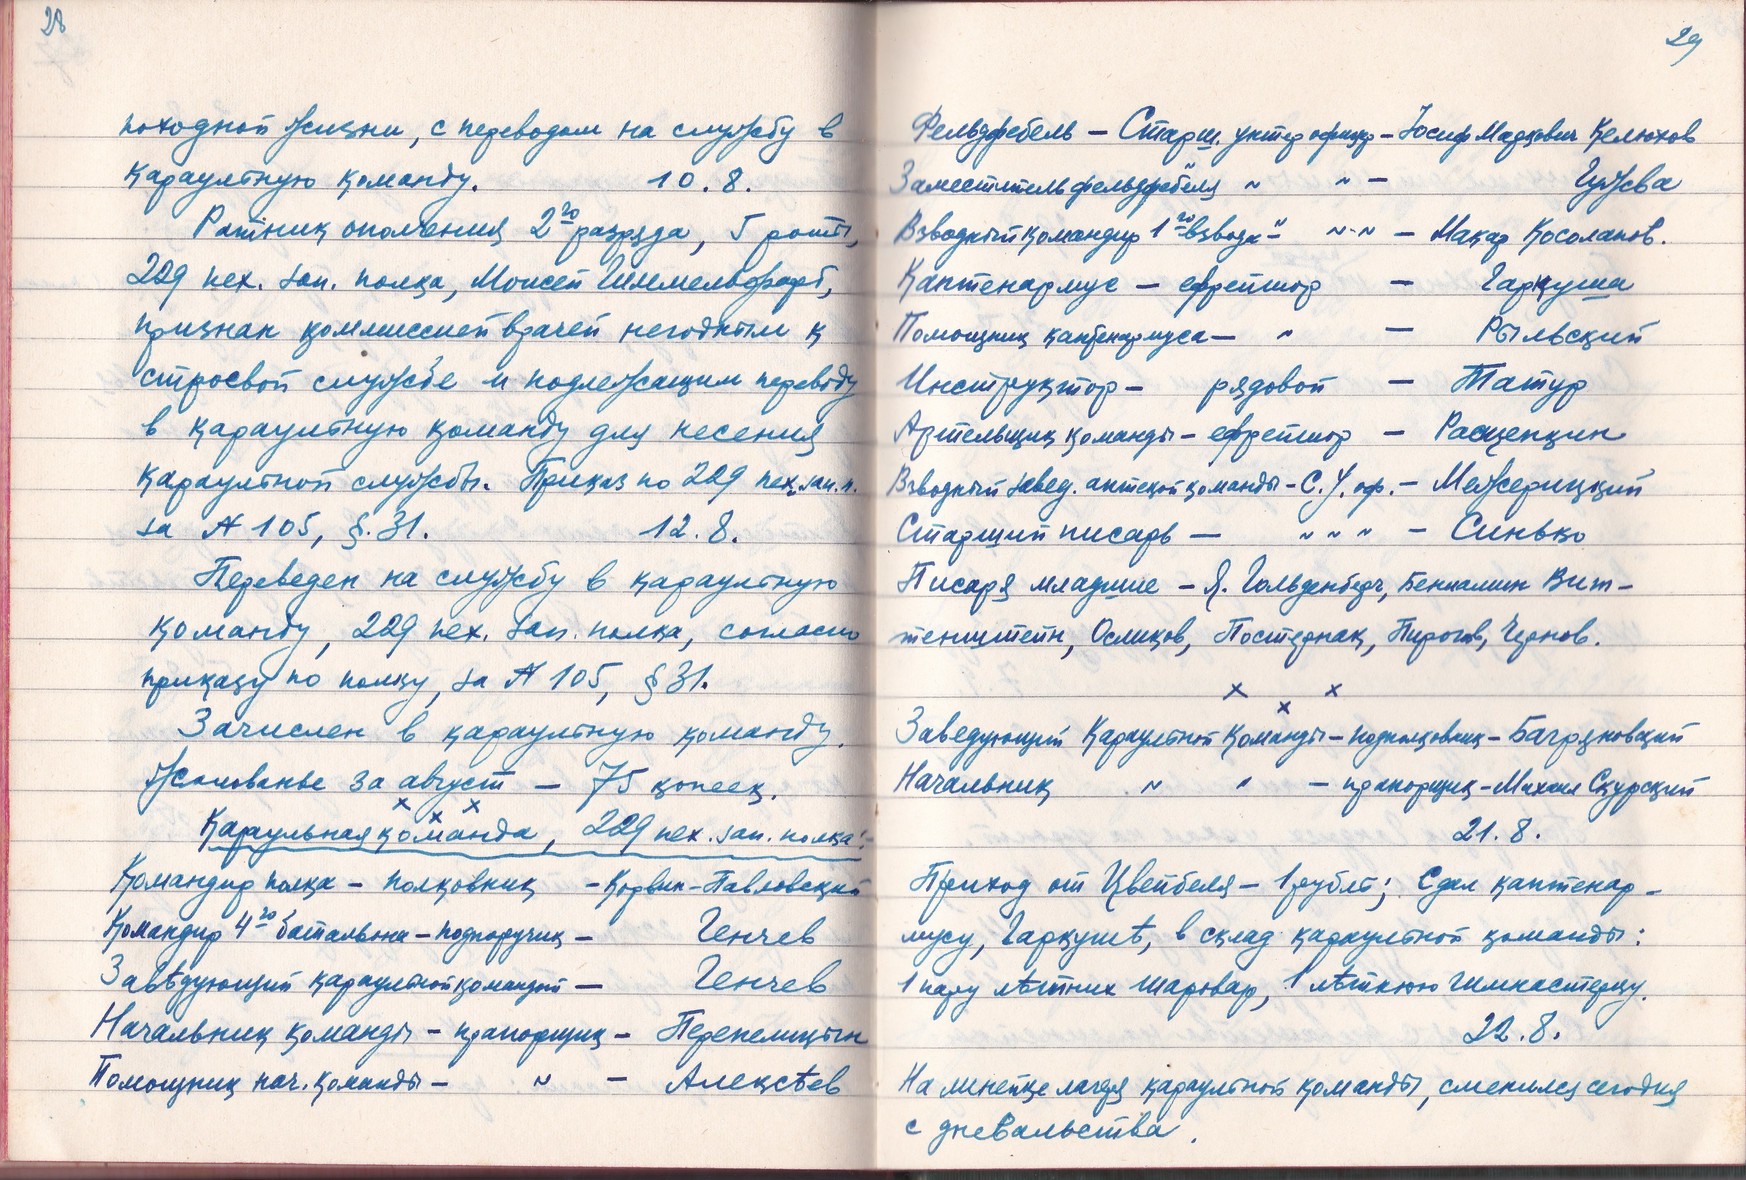 28
походной жизни, с переводом на службу в
караульную команду. 10.8.
Ратник ополчения 2го разряда, 5 роты,
229 пех. зап. полка, Моисей Гиммельфарб,
признан коммиссией врачей негодным к
строевой службе и подлежащим переводу
в караульную команду для несения
караульной службы. Приказ по 229 пех. зап. п.
за № 105, §.31. 12.8.
Переведен на службу в караульную
команду, 229 пех. зап. полка, согласно
приказу по полку, за № 105, §31.
Зачислен в караульную команду.
Жалованье за август – 75 копеек.
х х х
Караульная команда, 229 пех. зап. полка:-
Командир полка – полковник – Корвин-Павловский
Командир 4го батальона – подпоручик – Генчев
Завѣдующий караульной командой – Генчев
Начальник команды – прапорщик – Перепелицын
Помощник нач. команды – " – Алексѣев
29
Фельдфебель – Старш. унтер офицер – Иосиф Маркович Келюхов
Заместитель фельдфебеля " " " – Гужва
Взводный командир 1го взвода – " " – Макар Косолапов.
Каптенармус – ефрейтор – Гаркуша
Помощник каптенармуса – " – Рыльский
Инструктор – рядовой – Татур
Артельщик команды – ефрейтор – Расщепкин
Взводный завед. команды – С. У. оф. – Межерицкий
Старший писарь – " " " – Синько
Писаря младшие – Я. Гольденберг, Бениамин Вит-
тенштейн, Осликов, Постернак, Пирогов, Чернов.
х х х
Заведующий Караульной Команды – подполковник – Багряновский
Начальник " " – прапорщик – Михаил Скурский
21.8.
Приход от Цвейбеля – 1 рубль; Сдал каптенар-
мусу, Гаркушѣ, в склад караульной команды:
1 пару лѣтних шаровар, 1 лѣтнюю гимнастерку.
22.8.
На линейке лагеря караульной команды, сменился сегодня
с дневальства.